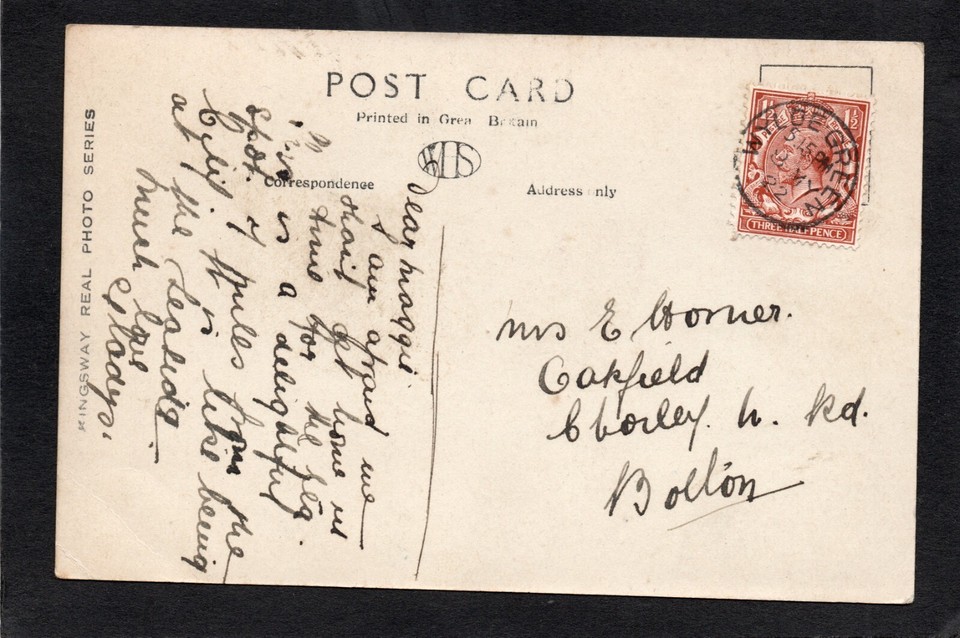 POST CARD
Printed in Great Britain
WHS
Correspondence
Address only
KINGSWAY REAL PHOTO SERIES
Dear Maggie
I am afraid we
shant get home in
time for the tea.
This is a delightful
spot. 7 miles from the
City. It is like being
at the Seaside
Much love
Gladys.
1½ 1½
THREE HALFPENCE
WYLDE GREEN
5.15PM
Mrs E Horner.
Oakfield
Chorley N. Rd.
Bolton